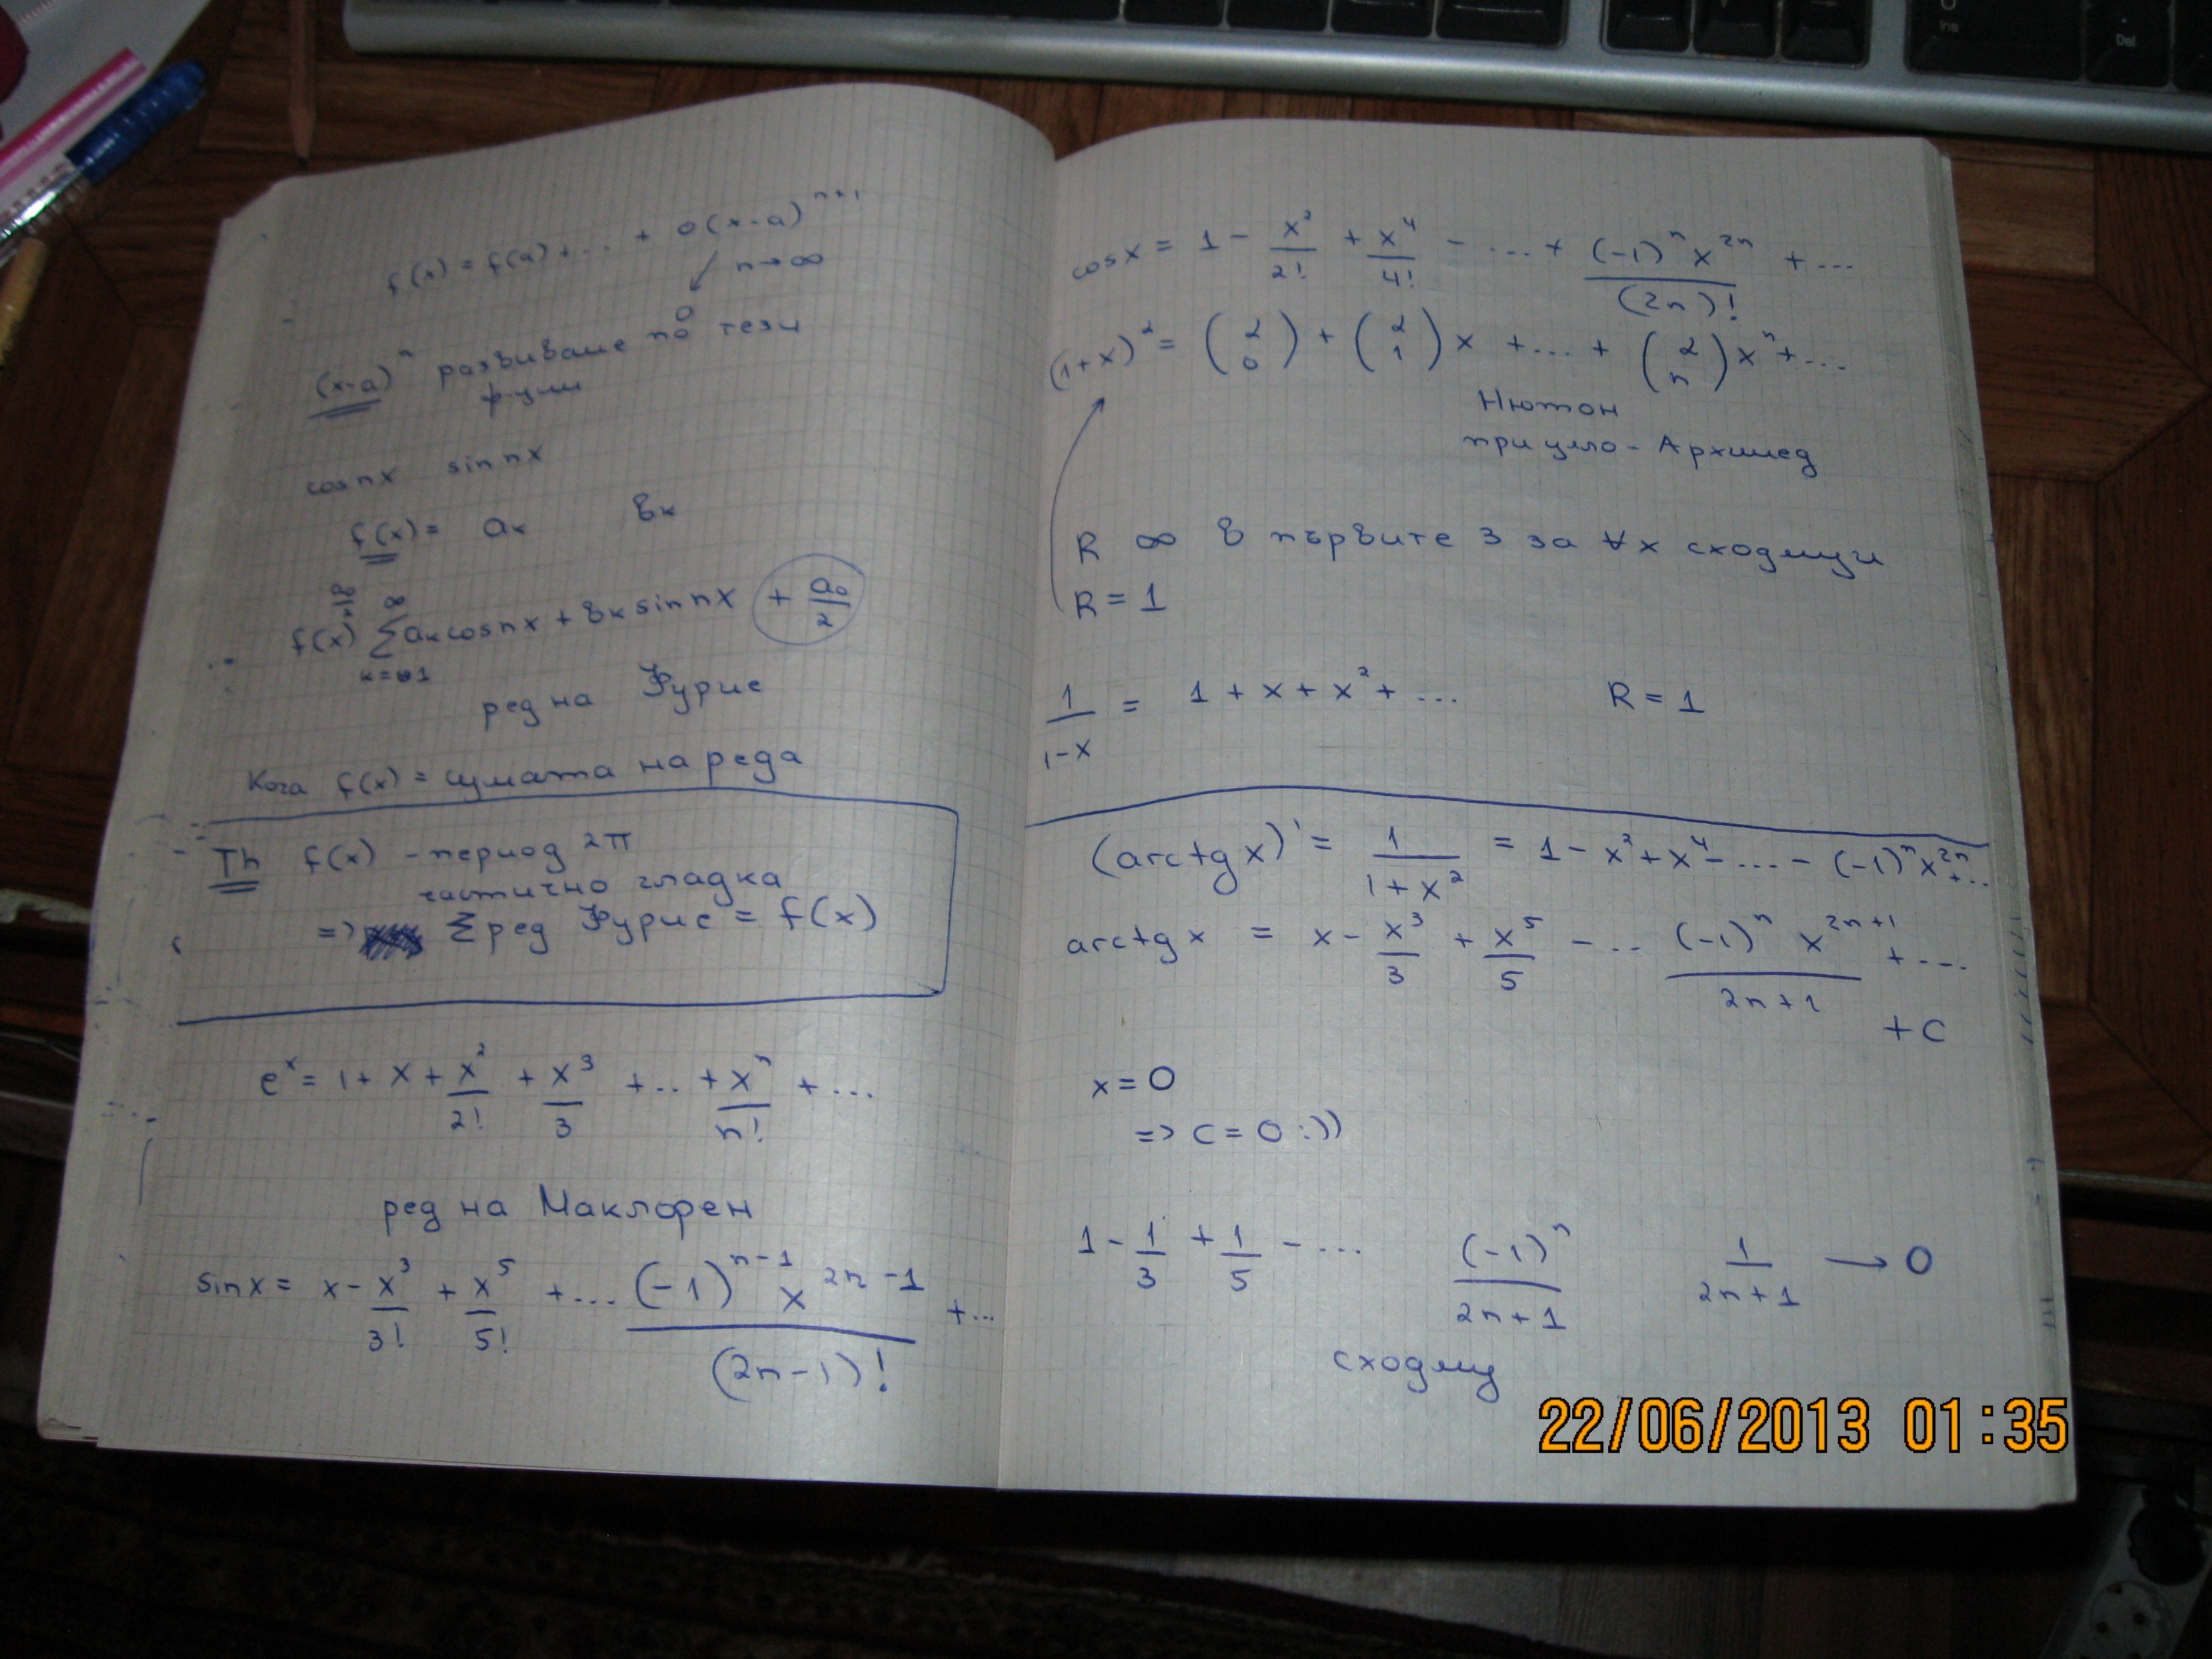 f(x) = f(a) + ... + o(x-a)^{n+1}
n→∞
0
(x-a)^n развиваме по тези
ф-ции
cos nx sin nx
f(x) = aₖ bₖ
f(x) ∑_{k=1}^{∞} aₖ cos nx + bₖ sin nx + a₀/2
ред на Фурие
Кога f(x) = сумата на реда
Th f(x) - период 2π
частично гладка
=> ∑ ред Фурие = f(x)
e^x = 1 + x + x^2/2! + x^3/3 + ... + x^n/n! + ...
ред на Маклорен
sin x = x - x^3/3! + x^5/5! + ... (-1)^{n-1} x^{2n-1}/(2n-1)! + ...
cos x = 1 - x^2/2! + x^4/4! - ... + (-1)^n x^{2n}/(2n)! + ...
(1+x)^2 = (2 0) + (2 1) x + ... + (2 n) x^n + ...
Нютон
при цяло - Архимед
R ∞ в първите 3 за ∀x сходящи
R = 1
1/(1-x) = 1 + x + x^2 + ... R = 1
(arctg x)' = 1/(1+x^2) = 1 - x^2 + x^4 - ... - (-1)^n x^{2n} + ...
arctg x = x - x^3/3 + x^5/5 - ... (-1)^n x^{2n+1}/(2n+1) + ...
+ C
x = 0
=> C = 0 :))
1 - 1/3 + 1/5 - ... (-1)^n/(2n+1) 1/(2n+1) → 0
сходящ
22/06/2013 01:35
Ins
Del